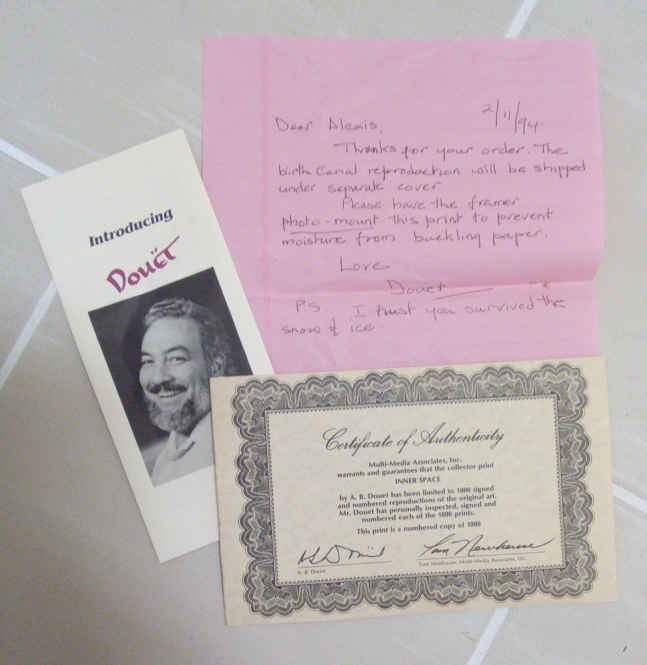 2/11/94
Dear Alexis,
Thanks for your order. The
birth Canal reproduction will be shipped
under separate cover
Please have the framer
photo-mount this print to prevent
moisture from buckling paper.
Love
Douet
P.S I trust you survived the
snow & ice
Introducing
Douët
Certificate of Authenticity
Multi-Media Associates, Inc.
warrants and guarantees that the collector print
INNER SPACE
by A. B. Douet has been limited to 1000 signed
and numbered reproductions of the original art.
Mr. Douet has personally inspected, signed and
numbered each of the 1000 prints.
This print is a numbered copy of 1000
A. B. Douet
Tom Newhouse, Multi-Media Associates, Inc.